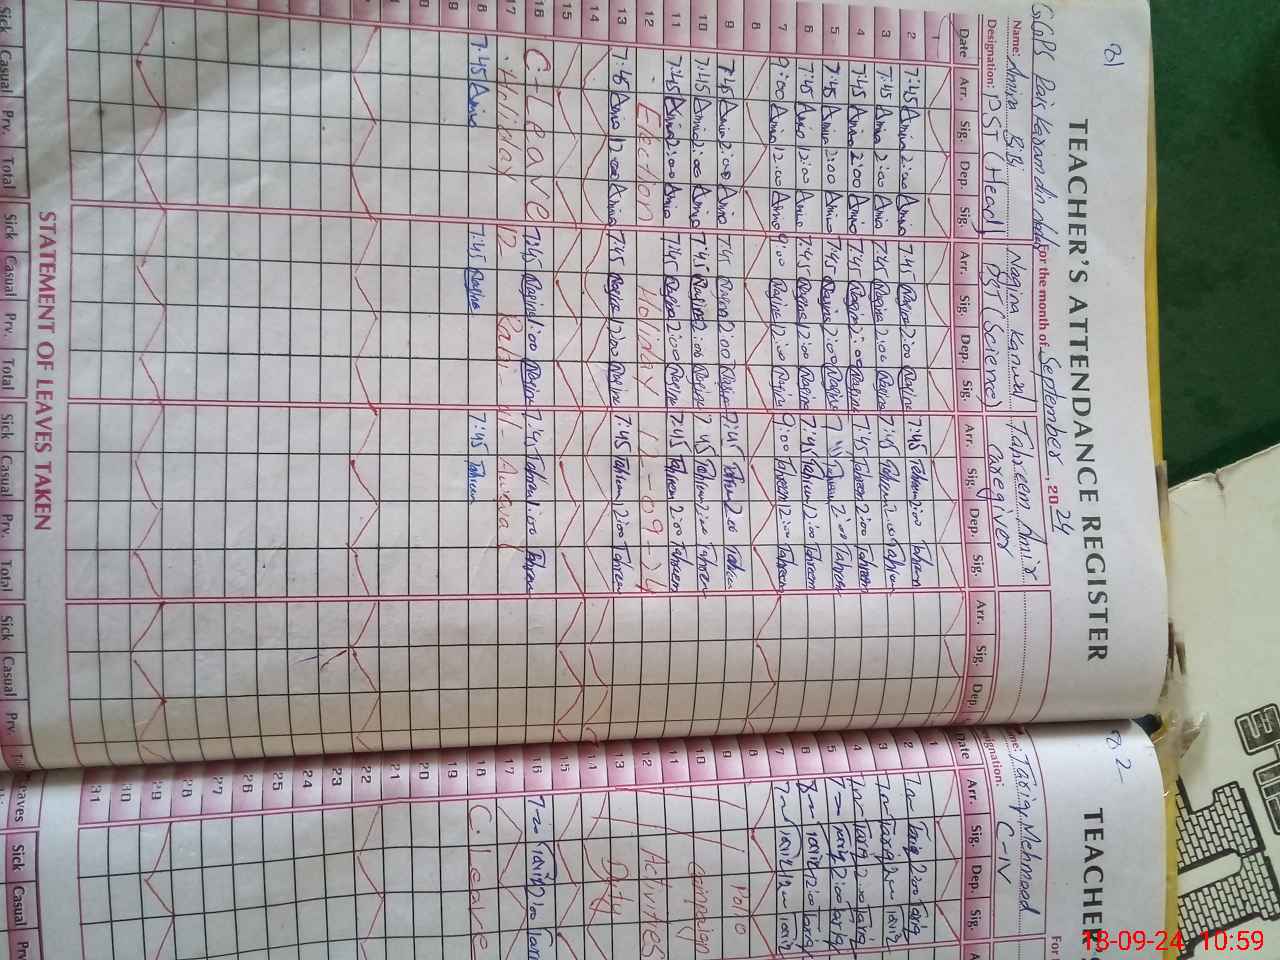 81
TEACHER'S ATTENDANCE REGISTER
For the month of September, 2024
Name: Amina BiBi
Nagina Kanwal
Tahreem Amir
Designation: PST (Head)
PST (Science)
Caregiver
Date Arr. Sig. Dep. Sig. Arr. Sig. Dep. Sig. Arr. Sig. Dep. Sig. Arr. Sig. Dep.
1
2 7:45 Amina 2:00 Amina 7:45 Nagina 2:00 Nagina 7:45 Tahreem 2:00 Tahreem
3 7:45 Amina 2:00 Amina 7:45 Nagina 2:00 Nagina 7:45 Tahreem 2:00 Tahreem
4 7:45 Amina 2:00 Amina 7:45 Nagina 2:00 Nagina 7:45 Tahreem 2:00 Tahreem
5 7:45 Amina 2:00 Amina 7:45 Nagina 2:00 Nagina 7:45 Tahreem 2:00 Tahreem
6 7:45 Amina 12:00 Amina 7:45 Nagina 12:00 Nagina 7:45 Tahreem 12:00 Tahreem
7 9:00 Amina 12:00 Amina 9:00 Nagina 12:00 Nagina 9:00 Tahreem 12:00 Tahreem
8
9 7:45 Amina 2:00 Amina 7:45 Nagina 2:00 Nagina 7:45 Tahreem 2:00 Tahreem
10 7:45 Amina 2:00 Amina 7:45 Nagina 2:00 Nagina 7:45 Tahreem 2:00 Tahreem
11 7:45 Amina 2:00 Amina 7:45 Nagina 2:00 Nagina 7:45 Tahreem 2:00 Tahreem
12 Election Holiday 12-09-24
13 7:45 Amina 12:00 Amina 7:45 Nagina 12:00 Nagina 7:45 Tahreem 12:00 Tahreem
14
15
16 C-Leave 7:45 Nagina 1:00 Nagina 7:45 Tahreem 1:00 Tahreem
17 Holiday 12 Rabi-ul-Awwal
18 7:45 Amina 7:45 Nagina 7:45 Tahreem
STATEMENT OF LEAVES TAKEN
Sick Casual Prv. Total Sick Casual Prv. Total Sick Casual Prv. Total Sick Casual Prv.
82
TEACHER'S
Name: Tariq Mehmood
Designation: C-IV
Date Arr. Sig. Dep. Sig.
1
2
3
4
5
6
7
8
9 Polio
10 Campaign
11
12 Activities
13 Duty
14
15
16
17
18 C. Leave
19
20
21
22
23
24
25
26
27
28
29
30
31
Leaves Sick Casual Prv
18-09-24, 10:59